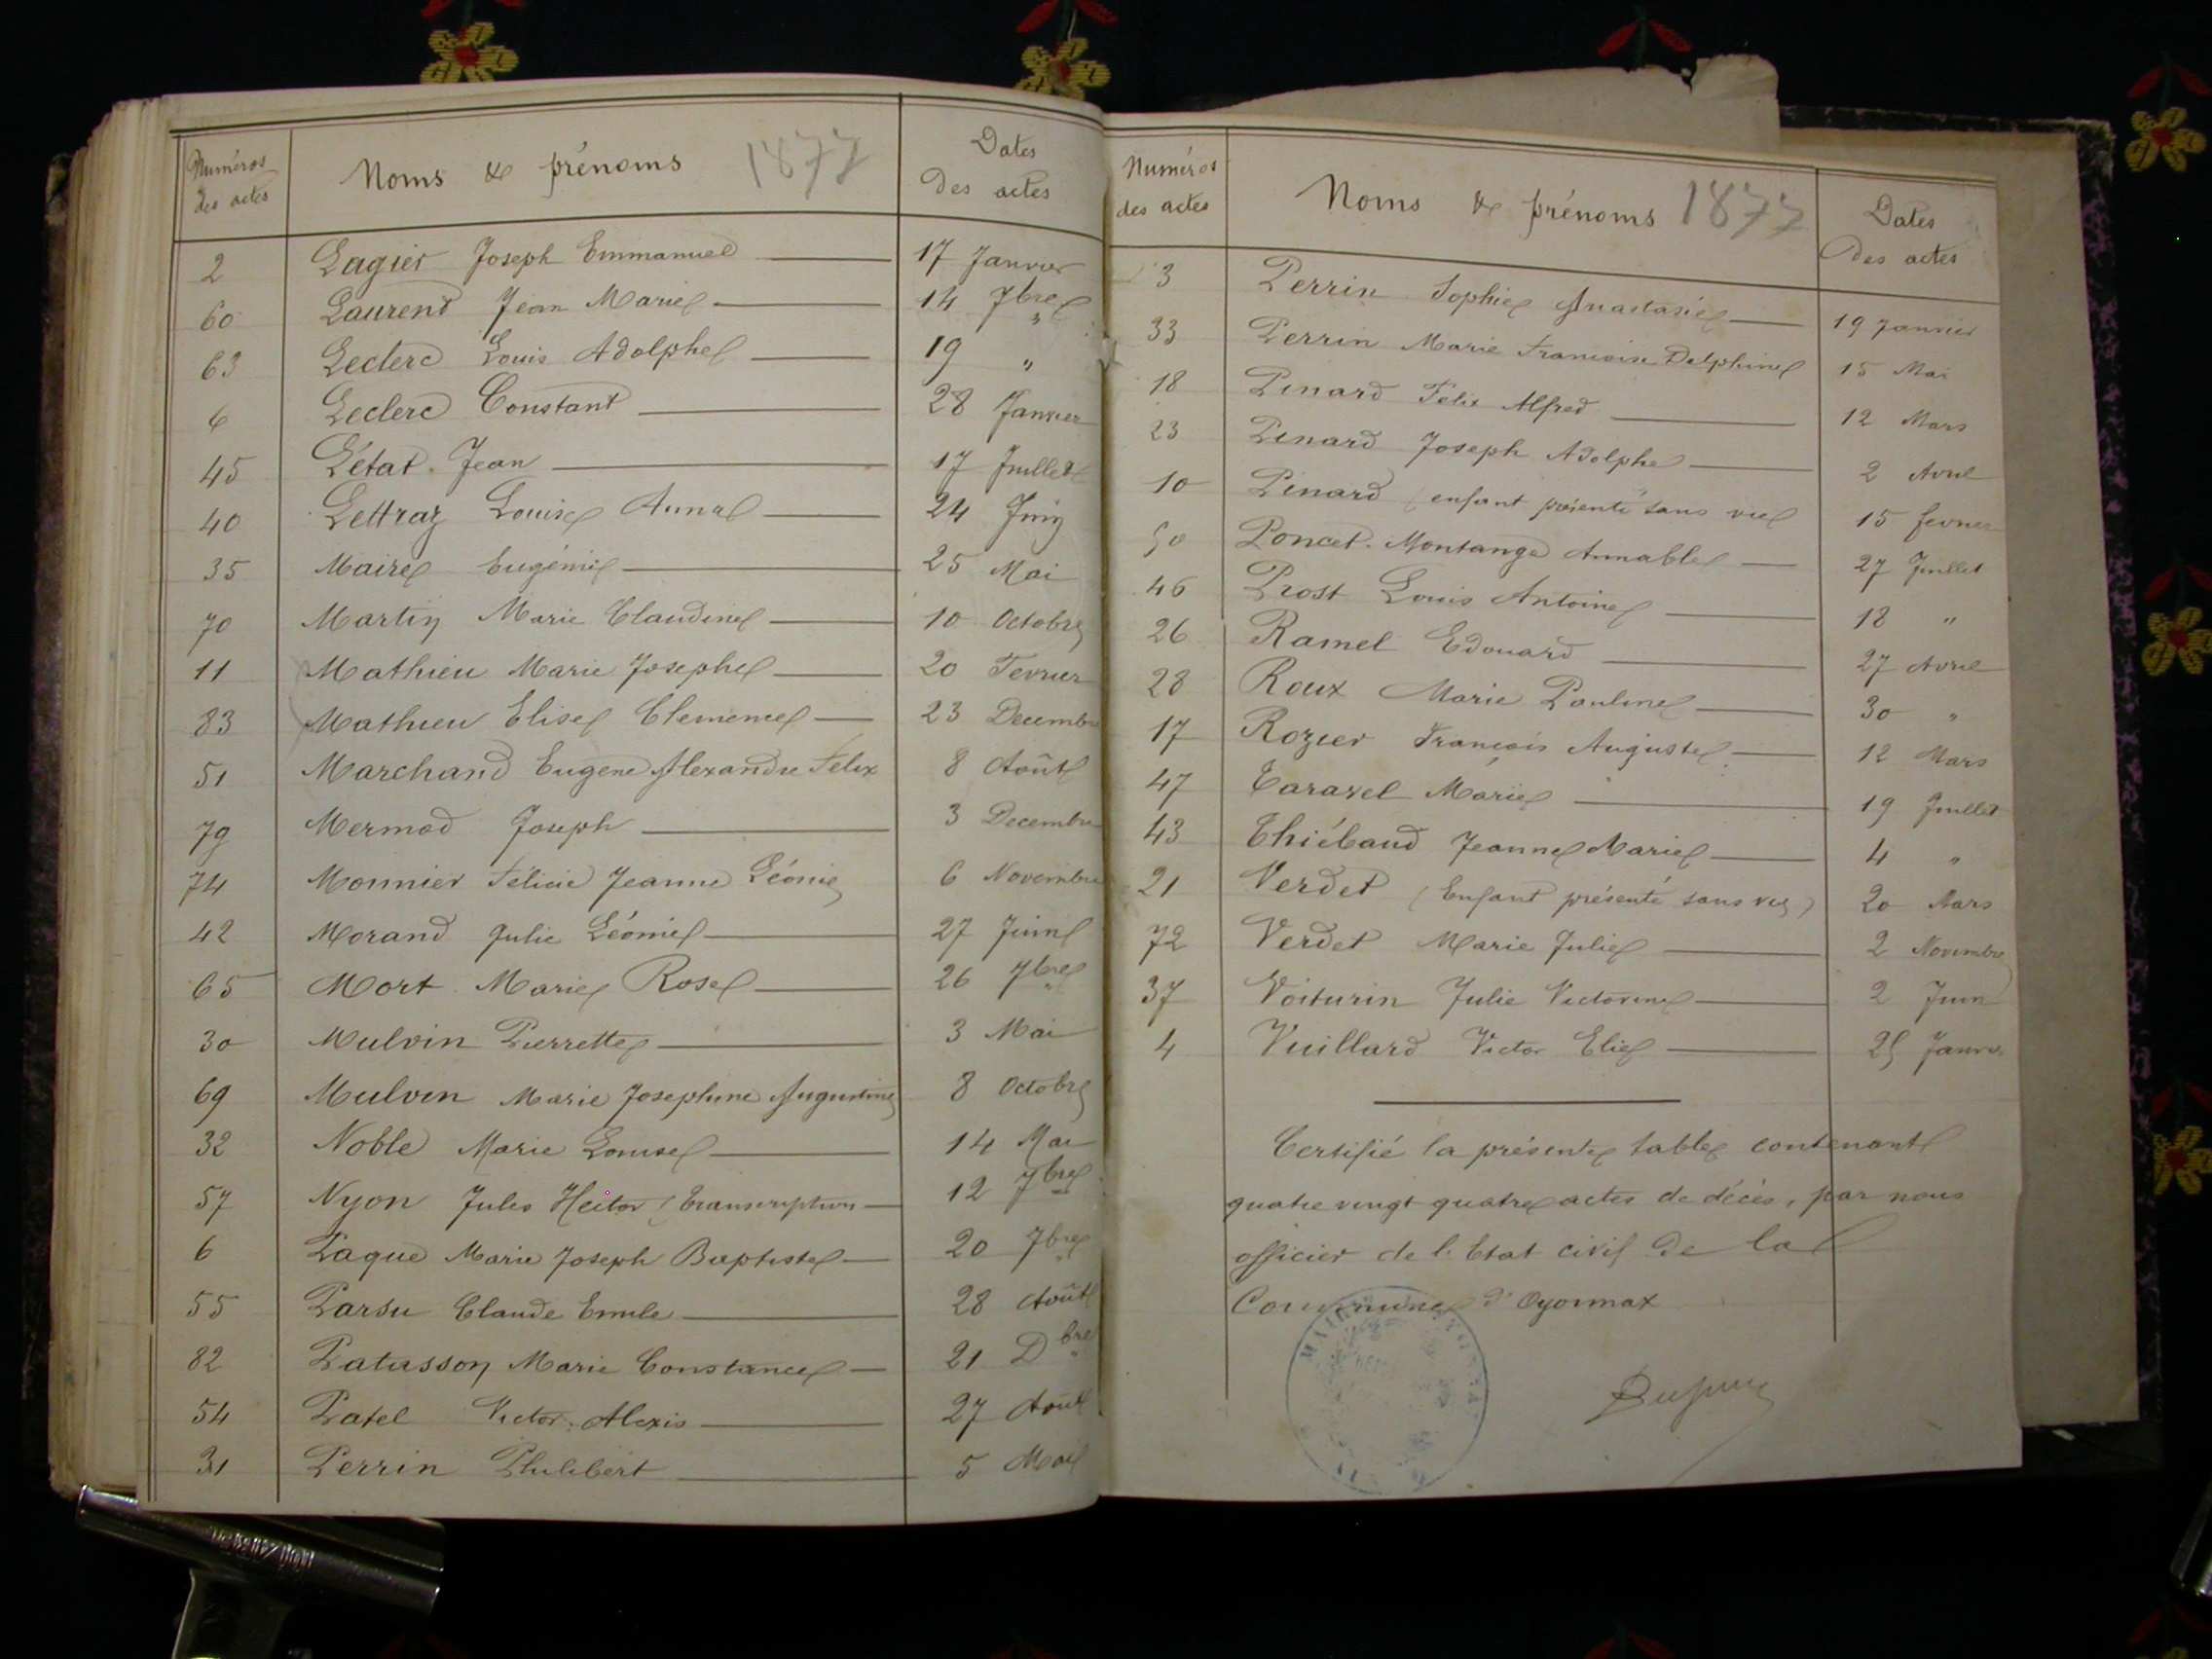 Numéros des actes Noms & prénoms 1877 Dates Des actes
2 Lagier Joseph Emmanuel 17 Janvier
60 Laurend Jean Marie 14 7bre
63 Leclerc Louis Adolphe 19 "
6 Leclerc Constant 28 Janvier
45 Létat Jean 17 Juillet
40 Lettraz Louise Anna 24 Juin
35 Maire Eugénie 25 Mai
70 Martin Marie Claudine 10 Octobre
11 Mathieu Marie Josephe 20 Fevrier
83 Mathieu Elise Clemence 23 Decembre
51 Marchand Eugene Alexandre Felix 8 Août
79 Mermod Joseph 3 Decembre
74 Monnier Félicie Jeanne Léonie 6 Novembre
42 Morand Julie Léonie 27 Juin
65 Mort Marie Rose 26 7bre
30 Mulvin Pierrette 3 Mai
69 Mulvin Marie Josephine Augustine 8 Octobre
32 Noble Marie Louise 14 Mai
57 Nyon Jules Hector (transcription 12 7bre
6 Paque Marie Joseph Baptiste 20 7bre
55 Parsu Claude Emile 28 Août
82 Patasson Marie Constance 21 Dbre
54 Patel Victor Alexis 27 Août
31 Perrin Philibert 5 Mai
Numéros des actes Noms & prénoms 1877 Dates Des actes
3 Perrin Sophie Anastasie 19 Janvier
33 Perrin Marie Francoise Delphine 15 Mai
18 Pinard Felix Alfred 12 Mars
23 Pinard Joseph Adolphe 2 Avril
10 Pinard (enfant présenté sans vie 15 fevrier
50 Poncet-Montange Annable 27 Juillet
46 Prost Louis Antoine 18 "
26 Ramel Edouard 27 Avril
28 Roux Marie Pauline 30 "
17 Rozier François Auguste 12 Mars
47 Taravel Marie 19 Juillet
43 Thiébaud Jeanne Marie 4 "
21 Verdet (Enfant présenté sans vie) 20 Mars
72 Verdet Marie Julie 2 Novembre
37 Voiturin Julie Victorine 2 Juin
4 Vuillard Victor Elie 25 Janvier
Certifié la présente table contenant
quatre vingt quatre actes de décès, par nous
officier de l'Etat civil de la
Commune d'Oyonnax